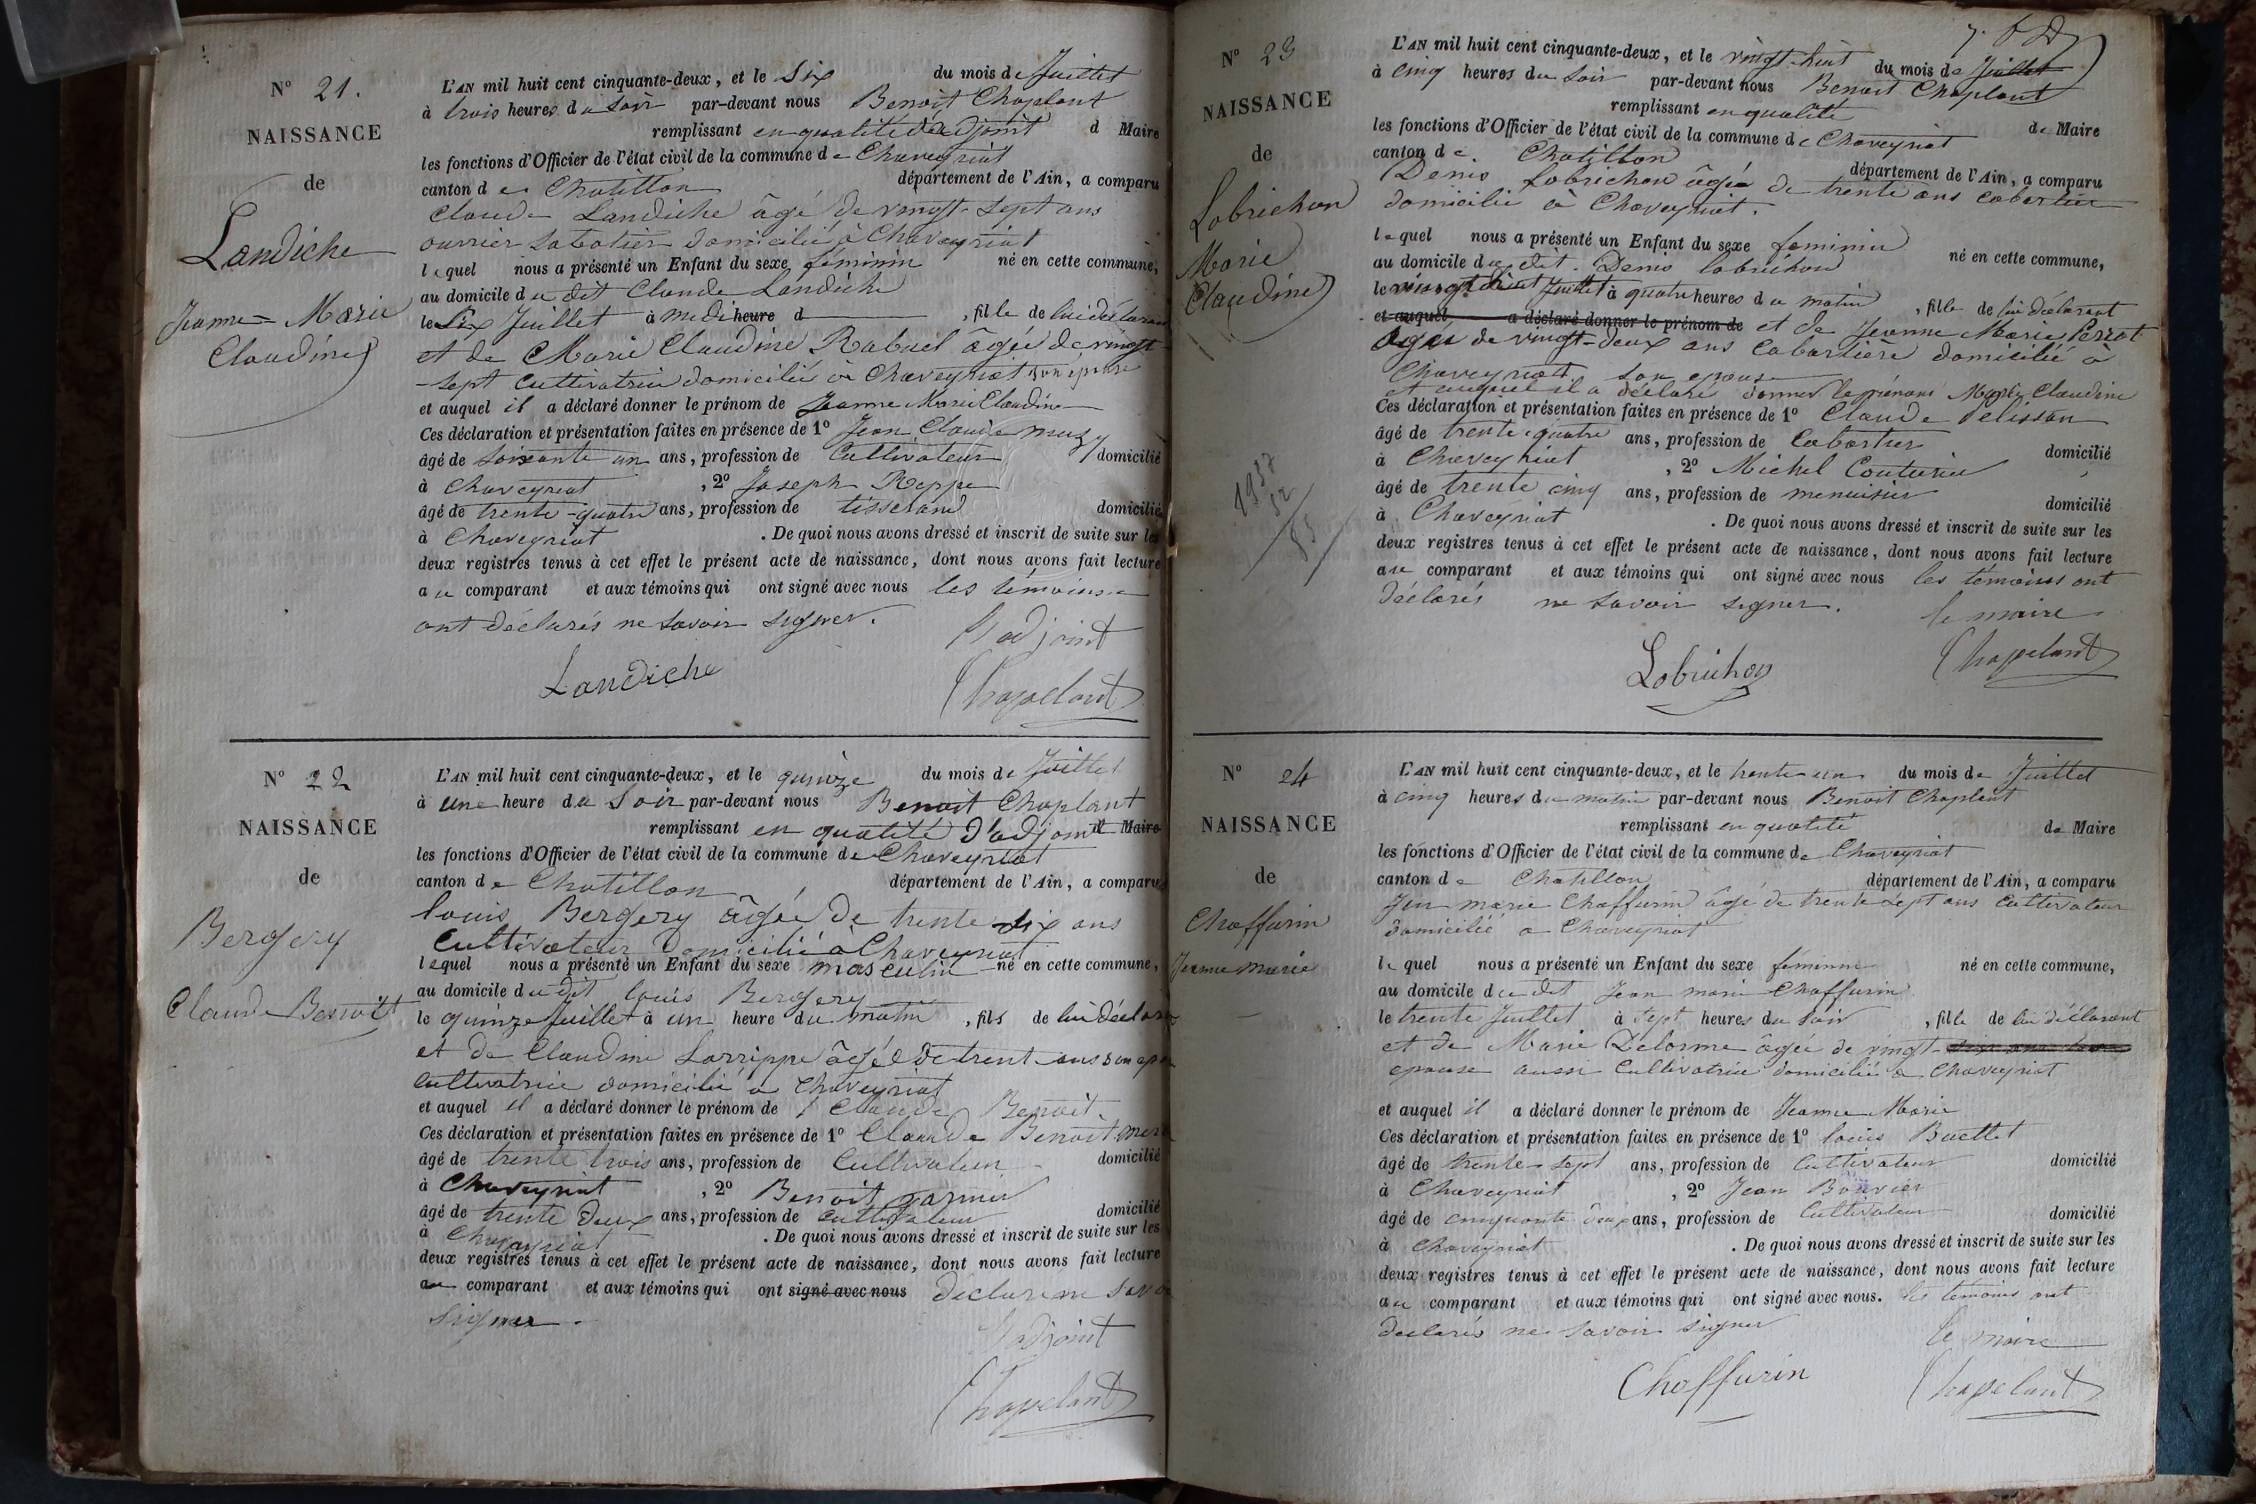 N° 21.
NAISSANCE
de
Landiche
Jeanne-Marie
Claudine
L'AN mil huit cent cinquante-deux, et le Six du mois de Juillet
à trois heures du Soir par-devant nous Benoit Chaplant
remplissant en qualité d'adjoint d Maire
les fonctions d'Officier de l'état civil de la commune de Chaveyriat
canton de Chatillon département de l'Ain, a comparu
Claude Landiche âgé de vingt-sept ans
ouvrier sabotier domicilié à Chaveyriat
lequel nous a présenté un Enfant du sexe féminin né en cette commune,
au domicile du dit Claude Landiche
le Six Juillet à midi heure d , fille de lui déclarant
et de Marie Claudine Rabuel âgée de vingt
-sept cultivatrice domicilié a Chaveyriat son épouse
et auquel il a déclaré donner le prénom de Jeanne Marie Claudine
Ces déclaration et présentation faites en présence de 1° Jean Claude muzy
âgé de soixante un ans, profession de Cultivateur domicilié
à Chaveyriat , 2° Joseph Reppe
âgé de trente-quatre ans, profession de tisserand domicilié
à Chaveyriat . De quoi nous avons dressé et inscrit de suite sur les
deux registres tenus à cet effet le présent acte de naissance, dont nous avons fait lecture
au comparant et aux témoins qui ont signé avec nous les témoins
ont déclarés ne savoir signer.
L'adjoint
Landiche
Chapelant
N° 22
NAISSANCE
de
Bergery
Claude Benoit
L'AN mil huit cent cinquante-deux, et le quinze du mois de Juillet
à une heure du Soir par-devant nous Benoit Chaplant
remplissant en qualité d'adjoint d Maire
les fonctions d'Officier de l'état civil de la commune de Chaveyriat
canton de Chatillon département de l'Ain, a comparu
louis Bergery âgée de trente six ans
Cultivateur domicilié à Chaveyriat
lequel nous a présenté un Enfant du sexe masculin né en cette commune,
au domicile du dit louis Bergery
le quinze Juillet à un heure du matin , fils de lui déclarant
et de Claudine Larrippe âgée de trent ans son épouse
Cultivatrice domicilié a Chaveyriat
et auquel il a déclaré donner le prénom de Claude Benoit
Ces déclaration et présentation faites en présence de 1° Claude Benoit
âgé de trente trois ans, profession de Cultivateur domicilié
à Chaveyriat , 2° Benoit garnier
âgé de trente deux ans, profession de cultivateur domicilié
à Chaveyriat . De quoi nous avons dressé et inscrit de suite sur les
deux registres tenus à cet effet le présent acte de naissance, dont nous avons fait lecture
au comparant et aux témoins qui ont signé avec nous déclare ne savoir
signer.
L'adjoint
Chapelant
N° 23
NAISSANCE
de
Lobrichon
Marie
Claudine
L'AN mil huit cent cinquante-deux, et le vingt-huit du mois de Juillet
à cinq heures du soir par-devant nous Benoit Chaplant
remplissant en qualité de Maire
les fonctions d'Officier de l'état civil de la commune de Chaveyriat
canton de Chatillon département de l'Ain, a comparu
Denis Lobrichon âgée de trente ans cabartier
domicilié à Chaveyriat.
lequel nous a présenté un Enfant du sexe feminin né en cette commune,
au domicile du dit. Denis lobrichon
le vingt huit Juillet à quatre heures du matin , fille de lui déclarant
et auquel a déclaré donner le prénom de et de Jeanne Marie Perrat
âgée de vingt-deux ans Cabartière domicilié à
Chaveyriat son epouse
et auquel il a déclaré donner le prénoms Marie Claudine
Ces déclaration et présentation faites en présence de 1° Claude Pelisson
âgé de trente-quatre ans, profession de Cabartier domicilié
à Chaveyriat , 2° Michel Couturier
âgé de trente cinq ans, profession de menuisier domicilié
à Chaveyriat . De quoi nous avons dressé et inscrit de suite sur les
deux registres tenus à cet effet le présent acte de naissance, dont nous avons fait lecture
au comparant et aux témoins qui ont signé avec nous les témoins ont
déclarés ne savoir signer.
le maire
Lobrichon
Chapelant
N° 24
NAISSANCE
de
Chaffurin
Jeanne marie
L'AN mil huit cent cinquante-deux, et le trente-un du mois de Juillet
à cinq heures du matin par-devant nous Benoit Chaplant
remplissant en qualité de Maire
les fonctions d'Officier de l'état civil de la commune de Chaveyriat
canton de Chatillon département de l'Ain, a comparu
Jean marie Chaffurin âgé de trente sept ans Cultivateur
domicilié a Chaveyriat
lequel nous a présenté un Enfant du sexe féminin né en cette commune,
au domicile du dit Jean marie Chaffurin
le trente Juillet à sept heures du soir , fille de lui déclarant
et de Marie Delorme âgée de vingt-
epouse aussi Cultivatrice domicilié a Chaveyriat
et auquel il a déclaré donner le prénom de Jeanne Marie
Ces déclaration et présentation faites en présence de 1° louis Buellet
âgé de trente-sept ans, profession de Cultivateur domicilié
à Chaveyriat , 2° Jean Bouvier
âgé de cinquante deux ans, profession de Cultivateur domicilié
à Chaveyriat . De quoi nous avons dressé et inscrit de suite sur les
deux registres tenus à cet effet le présent acte de naissance, dont nous avons fait lecture
au comparant et aux témoins qui ont signé avec nous. les témoins ont
déclarés ne savoir signer
le maire
Chaffurin
Chapelant